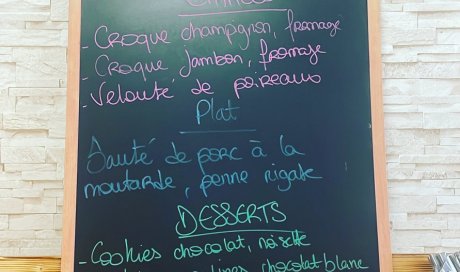 - Croque champignon, fromage
- Croque jambon, fromage
- Velouté de poireaux
Plat
Sauté de porc à la
moutarde, penne rigate
DESSERTS
- Cookies chocolat, noisette
chocolat blanc